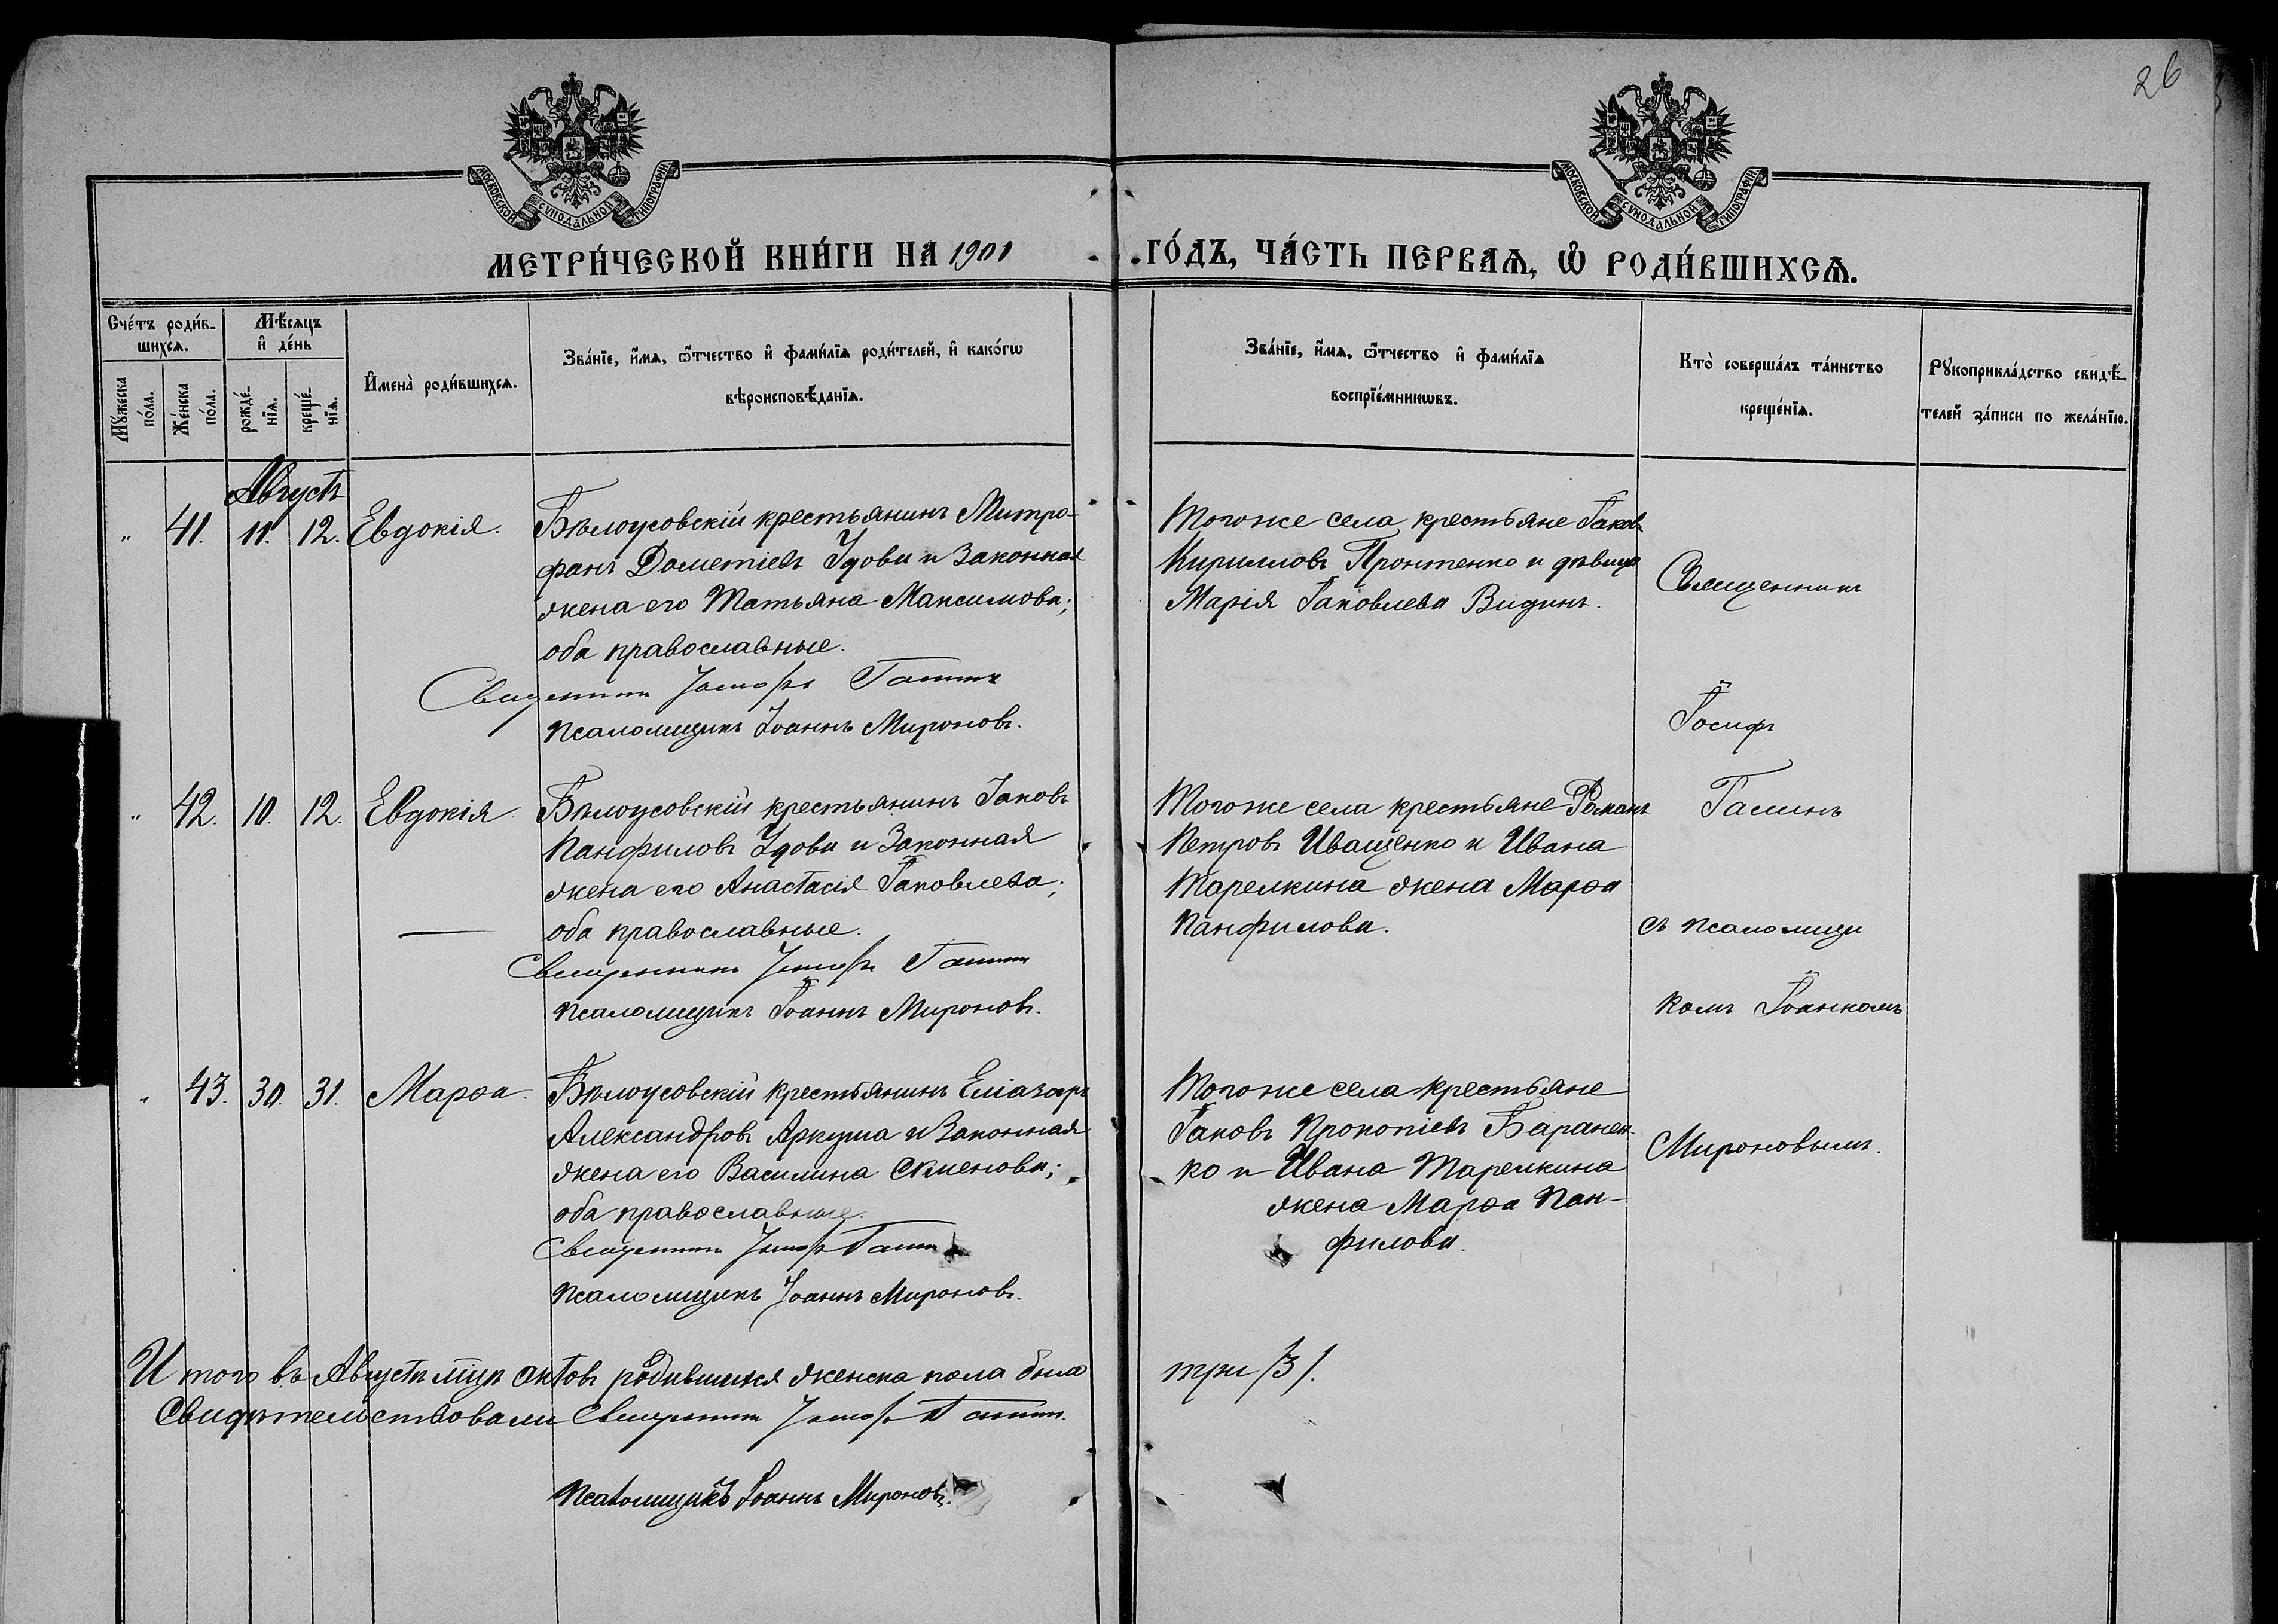 26
МОСКОВСКОЙ СѴНОДАЛЬНОЙ ТИПОГРАФІИ
МОСКОВСКОЙ СѴНОДАЛЬНОЙ ТИПОГРАФІИ
МЕТРИ́ЧЕСКОЙ КНИ́ГИ НА 1901 ГО́ДЪ, ЧА́СТЬ ПЕРВАѦ, Ѽ РОДИ́ВШИХСѦ.
Сче́тъ роди́в-
шихсѧ.
Мѣ́сѧцъ
и҆ де́нь
Мꙋ́жеска по́ла.
Же́нска по́ла.
рожде́-
нїѧ.
креще́-
нїѧ.
И҆мена̀ роди́вшихсѧ.
Зва́нїе, и҆́мѧ, ѻ҆́тчество и҆ фами́лїѧ роди́телей, и҆ како́гѡ
вѣроисповѣ́данїѧ.
Зва́нїе, и҆́мѧ, ѻ҆́тчество и҆ фами́лїѧ
воспрїе́мникѡвъ.
Кто̀ соверша́лъ та́инство
креще́нїѧ.
Рꙋкоприкла́дство свидѣ́-
телей за́писи по жела́нїю.
Августъ
„ 41. 11. 12. Евдокія.
Бѣлоусовскій крестьянинъ Митро-
фанъ Дометіевъ Удови и законная
жена его Татьяна Максимова;
оба православные.
Священникъ Іосифъ Галинъ
псаломщикъ Іоаннъ Мироновъ.
Того же села крестьяне Іаковъ
Кирилловъ Пронтенко и дѣвица
Марія Іаковлева Видинъ.
Священникъ
Іосифъ
„ 42. 10. 12. Евдокія
Бѣлоусовскій крестьянинъ Іаковъ
Панфиловъ Удови и законная
жена его Анастасія Іаковлева;
оба православные.
Священникъ Іосифъ Галинъ
псаломщикъ Іоаннъ Мироновъ.
Того же села крестьяне Романъ
Петровъ Иващенко и Ивана
Тарелкина жена Марѳа
Панфилова.
Галинъ
съ псаломщи
комъ Іоанномъ
„ 43. 30. 31. Марѳа.
Бѣлоусовскій крестьянинъ Еліазаръ
Александровъ Аркуша и законная
жена его Василина Семенова;
оба православные.
Священникъ Іосифъ Галинъ
псаломщикъ Іоаннъ Мироновъ.
Того же села крестьяне
Іаковъ Прокопіевъ Баранен-
ко и Ивана Тарелкина
жена Марѳа Пан-
филова.
Мироновымъ.
Итого въ Августѣ м̃цѣ актовъ родившихся женска пола было три /3/.
Свидѣтельствовали Священникъ Іосифъ Галинъ.
псаломщикъ Іоаннъ Мироновъ.